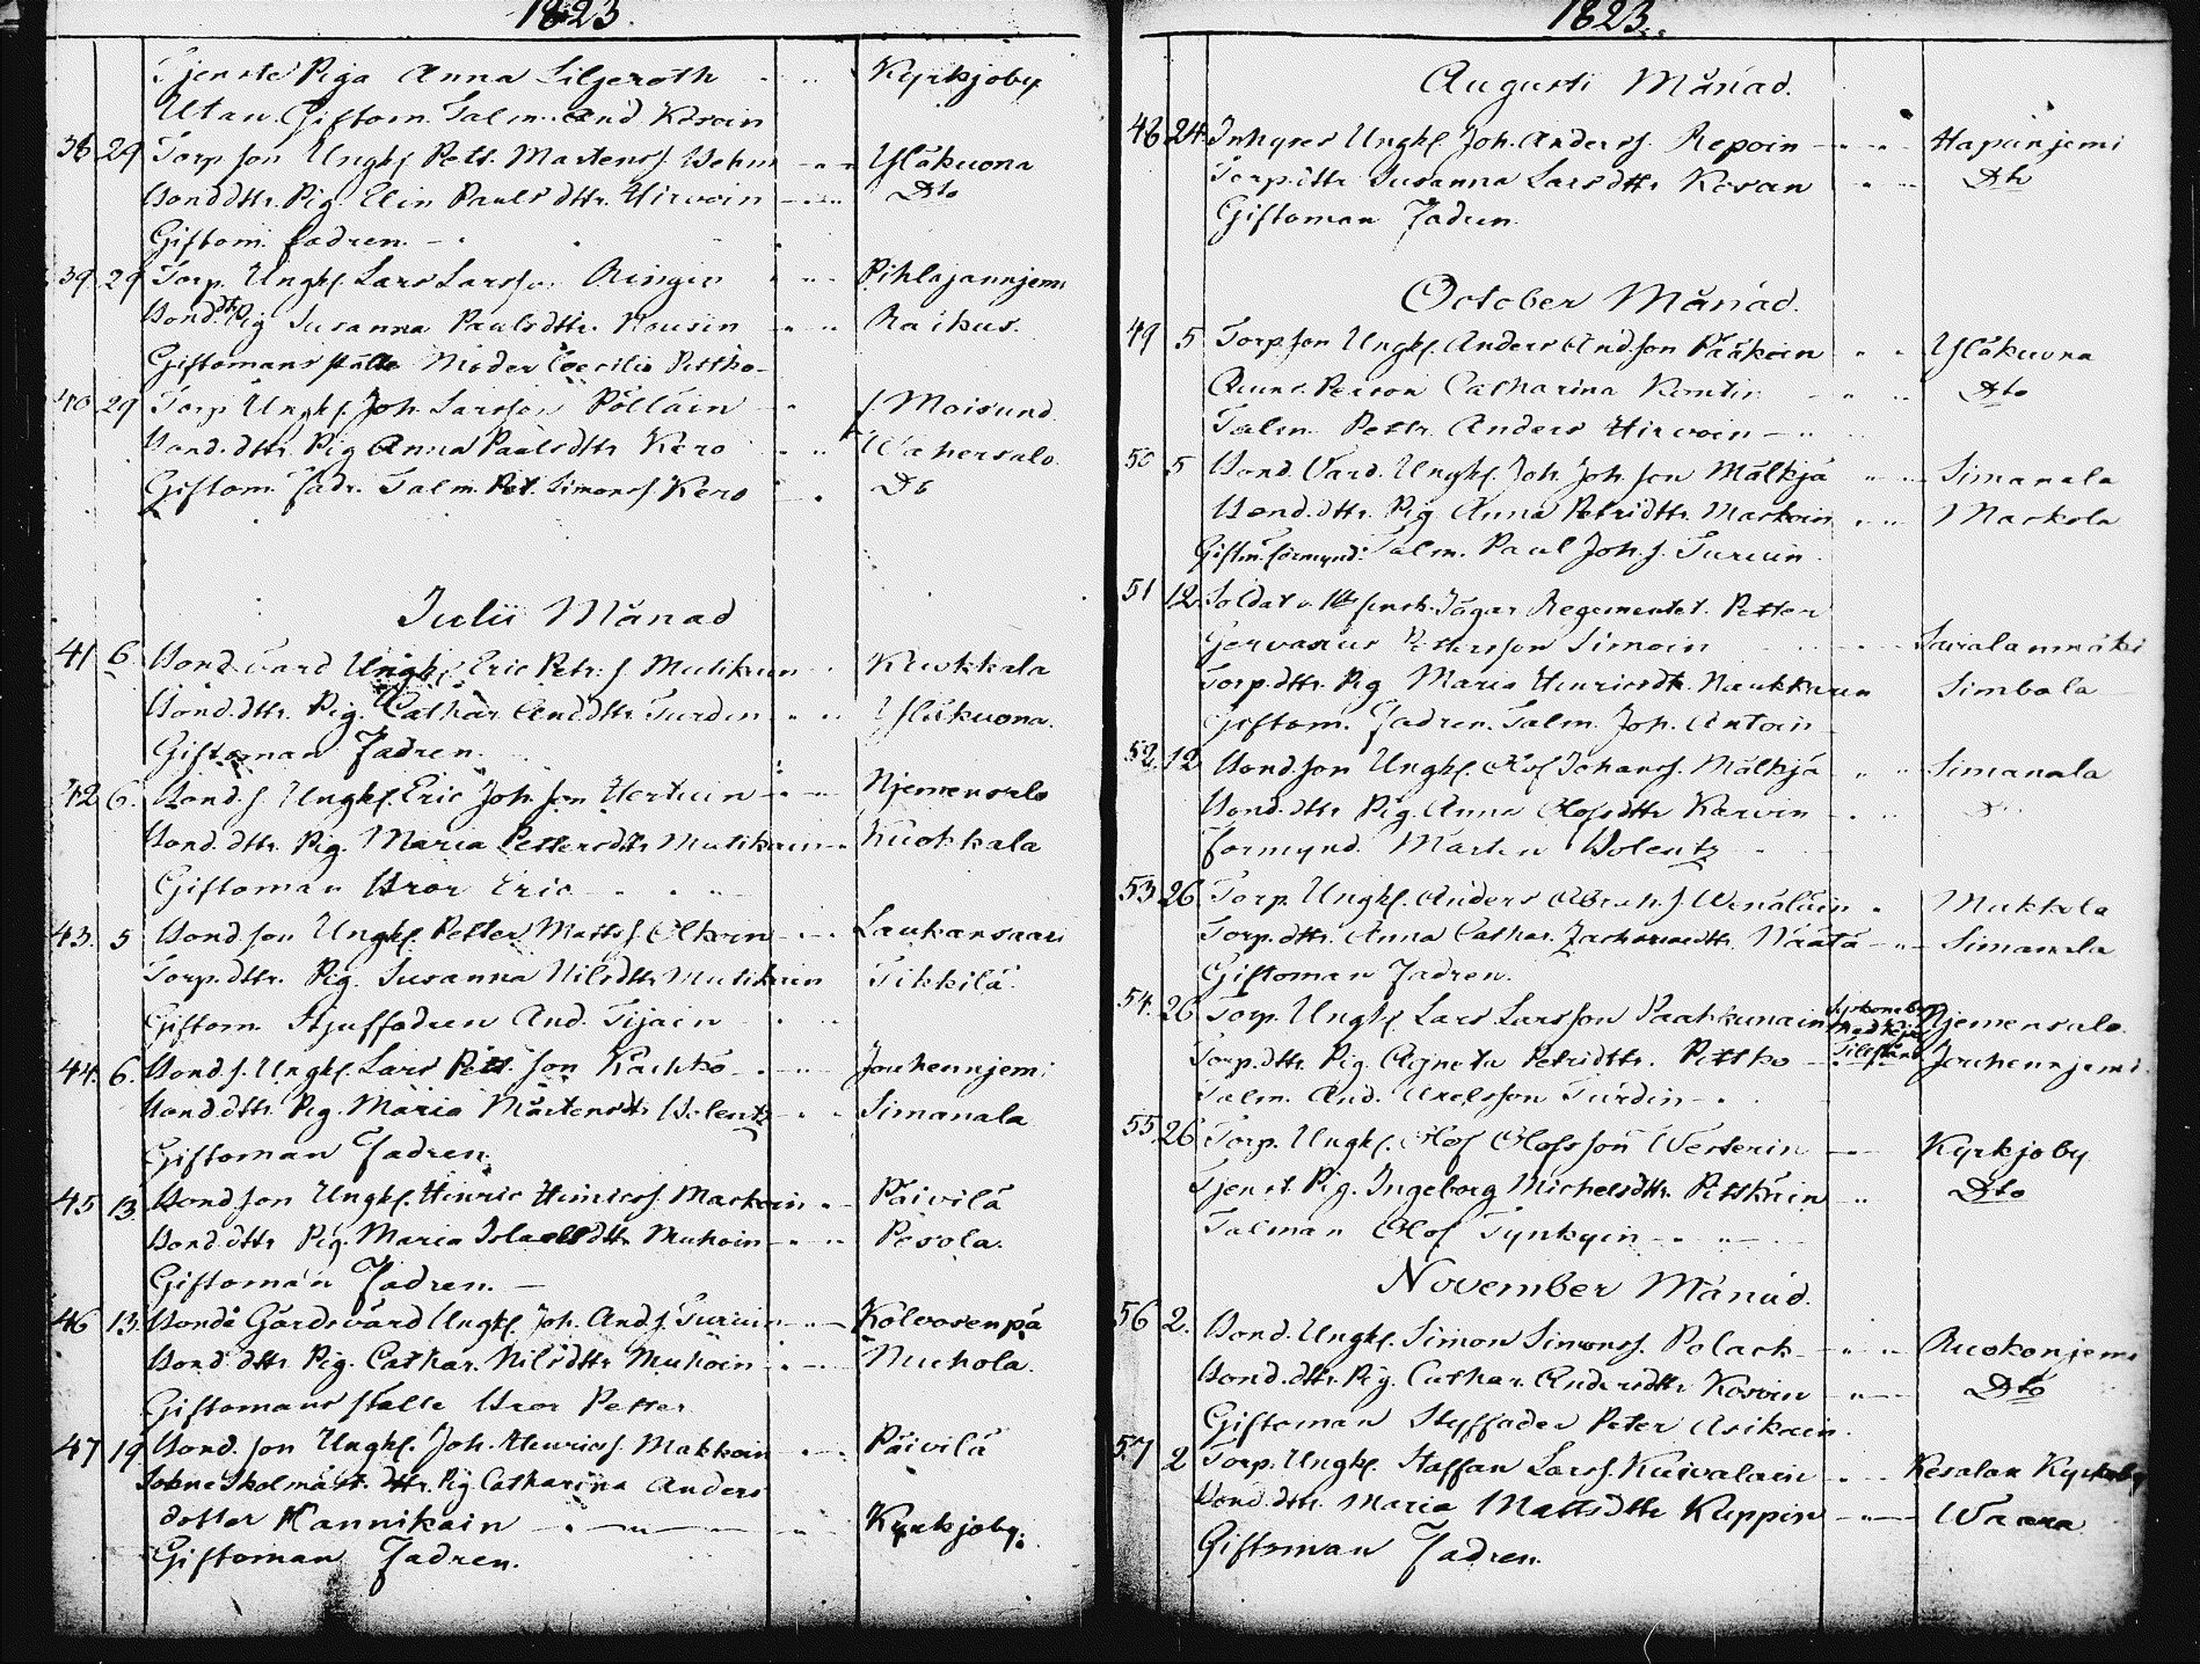 1823.
Tjenste Piga Anna Liljeroth Kyrkjoby
Utan Giftom. Talm. And Kosoin
38 29 Torp son Ungk. Pett. Mårtenss. Behm Yläkuona
Bond dttr. Pig. Elin Pauls dttr. Hirvoin Dto
Giftom. fadren.
39 29 Torp. Ungk. Lars Larsson Ringin Pihlajannjemi
Bond. dtr Pig Susanna Paulsdttr. Nousin Raikus.
Giftomans ställe Moder Coecilia Pittko
40 29 Torp Ungk. Joh. Larsson Pölläin Moisund
Bond. dttr. Pig Anna Paulsdttr Kero Wahersalo
Giftom. Fadr. Talm. Pet. Simonss. Kero Do
Julii Månad
41 6. Bond. Vard Ungk. Eric Petr. s. Mutikain Kuokkala
Bond. dttr. Pig. Cathar. And dttr. Turdin Yläkuona.
Giftoman Fadren.
42 6. Bond. s. Ungk. Eric Joh. son Hertuin Njemensalo
Bond. dttr. Pig. Maria Pettersdttr Mutikain Kuokkala
Giftoman Bror Eric
43. 5 Bond son Ungk. Petter Matts s. Olkoin Laukansaari
Torp. dttr. Pig. Susanna Nilsdttr Mutikain Tikkilä
Giftom. Stjuffadren And. Tijain
44. 6. Bond. s. Ungk. Lars Pett. son Kaukko Jouhennjemi
Bond. dttr. Pig. Maria Mårtensdtr Bolentz Simanala
Giftoman Fadren
45 13. Bond son Ungk. Hinric Hinricss. Markoin Päivilä
Bond. dttr Pig. Maria Islaelsdttr Muhoin Pesola.
Giftoman Fadren.
46 13. Bonde Gårdsvård Ungk. Joh. And s. Turuin Kolvosenpä
Bond dttr Pig. Cathar. Nilsdttr Muhoin Muhola.
Giftomans ställe Bror Petter
47 19 Bond. son Ungk. Joh. Henricss. Makkoin Päivilä
Sokne Skolmäst. dttr. Pig Catharina Anders
dotter Hannikain Kyrkjoby.
Giftoman Fadren.
1823.
Augusti Månad.
48 24. Inhyses Ungk. Joh. Anderss. Repoin Hapanjemi
Torp. dttr Susanna Larsdttr Kosan Dto
Giftoman Fadren
October Månad.
49 5 Torp. son Ungk. Anders And. son Pääkoin Yläkuona
Qvins Person Catharina Kontin Dto
Talm. Pettr. Anders Hirvoin
50 5 Bond. Vard. Ungk. Joh. Joh. son Mälkjä Simanala
Bond. dttr. Pig Anna Petridttr. Markoin Markola
Giftm. förmynd. Talm. Paul Joh. s. Turuin
51 12. Soldat v. finsk. Jägar Regementet. Petter
Gervasius Pettersson Simoin Savalanmäki
Torp. dttr. Pig Maria Hinricsdtr. Naukkarin Simbala
Giftom. Fadren. Talm. Joh. Antoin
52. 12 Bond. son Ungk. Olof Johanss. Mälkjä Simanala
Bond. dttr Pig. Anna Olofsdttr Karvin D
Formynd. Mårten Bolentz
53 26 Torp. Ungk. Anders Abrah. s. Wenäläin Makkola
Torp. dttr. Anna Cathar. Zachariaedttr. Näätä Simanala
Giftoman Fadren.
54. 26 Torp. Ungk. Lars Larsson Paahkunain Njemensalo
Torp. dttr. Pig. Agneta Petridttr. Pittko Jouhennjemi.
Talm. And. Axelsson Turdin
55 26 Torp. Ungk. Olof Olofsson Westerin Kyrkjoby
Tjenst. Pig. Ingeborg Michelsdttr. Pitkäin Dto
Talman Olof Tynkyin
November Månad.
56 2. Bond. Ungk. Simon Simonss. Polack Ruokonjemi
Bond. dttr. Pig. Cathar. Andersdttr Kosoin Dto
Giftoman Styffader Peter Asikain.
57 2 Torp. Ungk. Staffan Larss. Kuivalain Kesalax Kyrkoby
Bond. dttr. Maria Mattsdttr Kuppin Waara
Giftoman Fadren.